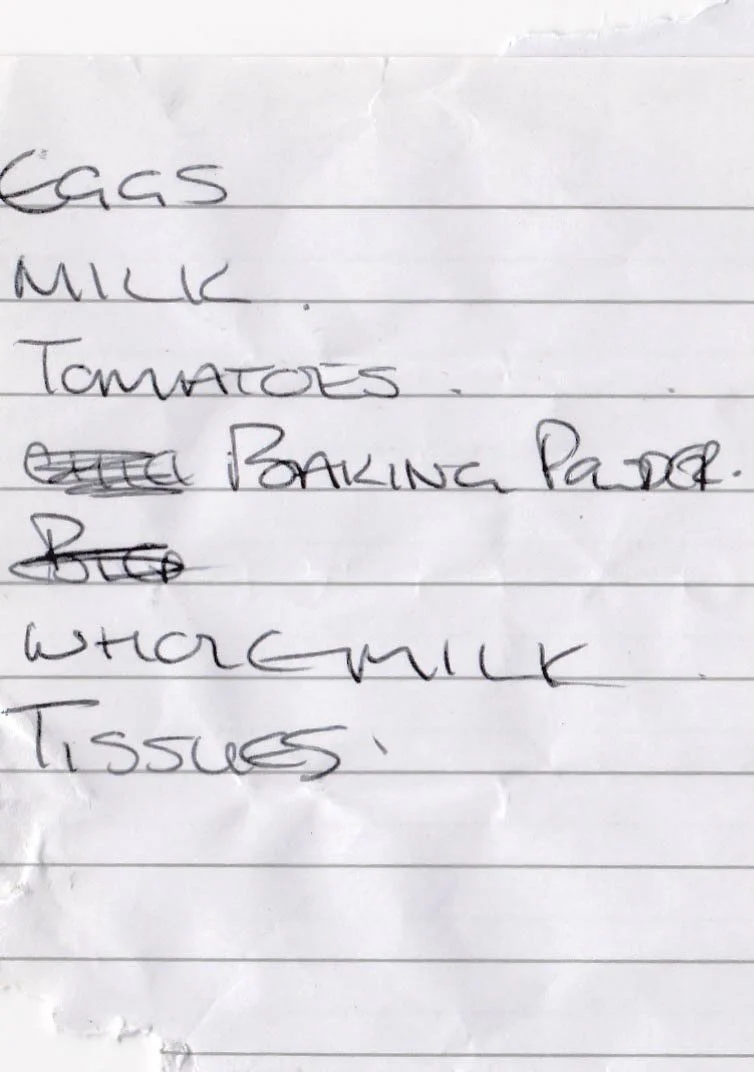 EGGS
MILK
TOMATOES
BAKING POWDER.
WHOLE MILK
TISSUES